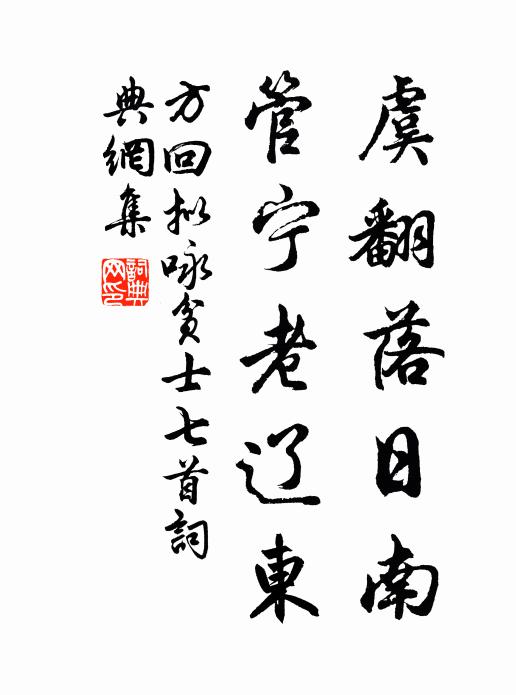 虞翻落日南
管宁老辽東
方回拟咏贫士七首詞
典網集
詞典
网印